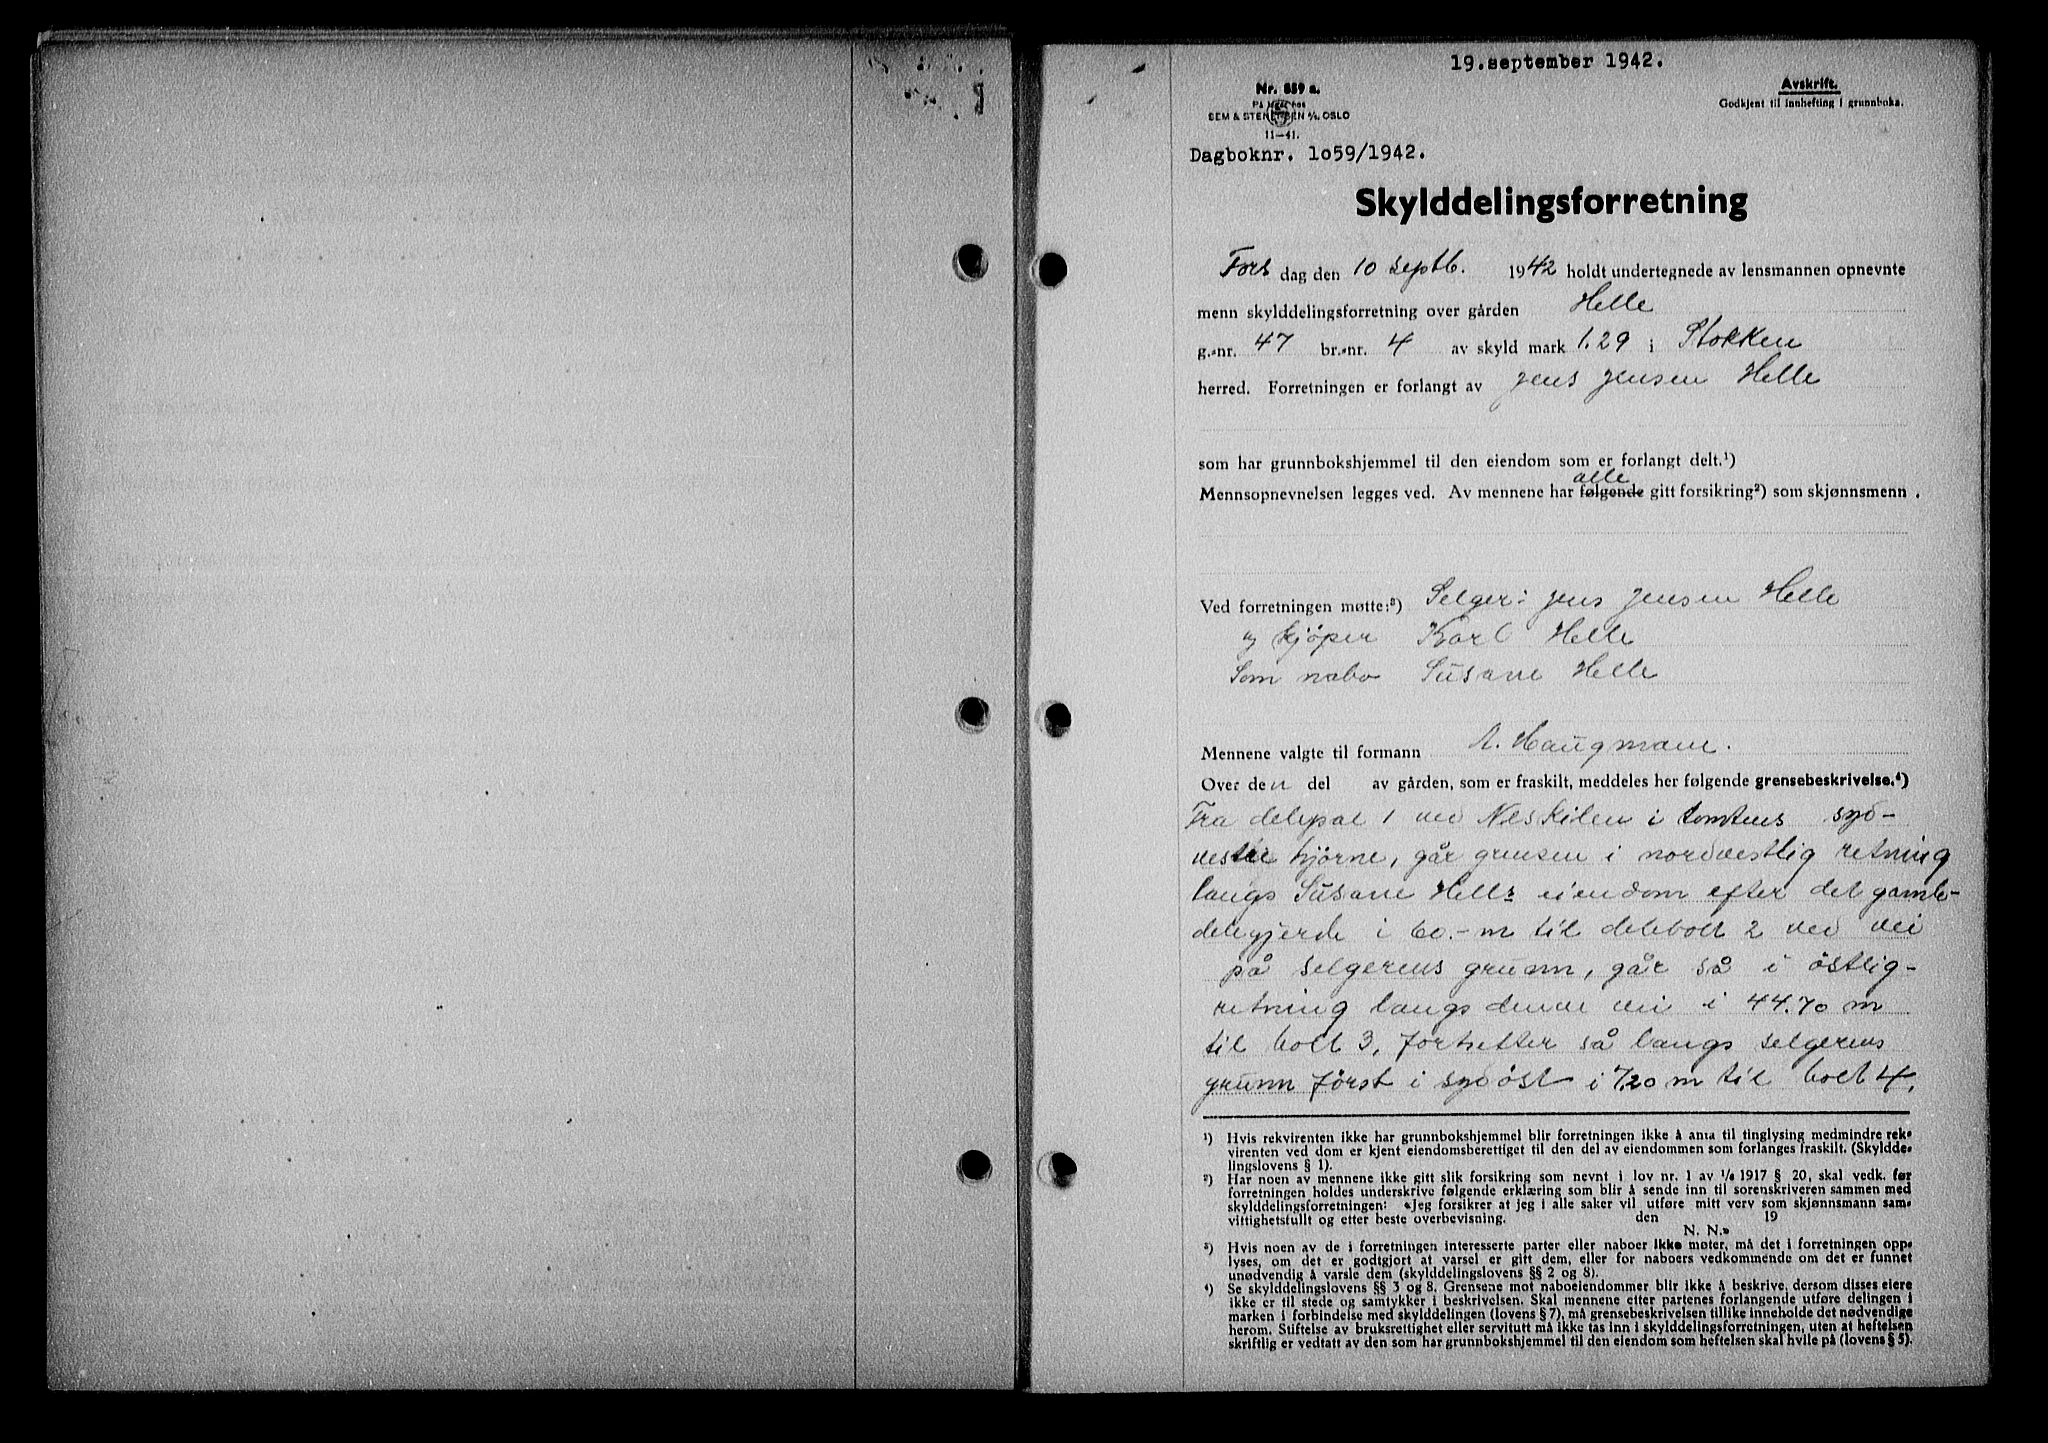 19.september 1942.
Nr. 859 a.
På lager hos
SEM & STENERSEN A/S. OSLO
11—41.
Avskrift.
Godkjent til innhefting i grunnboka.
Dagboknr. 1o59/1942.
Skylddelingsforretning
Tors dag den 10 septb. 1942 holdt undertegnede av lensmannen opnevnte
menn skylddelingsforretning over gården Helle
g.-nr. 47 br.-nr. 4 av skyld mark 1.29 i Stokken
herred. Forretningen er forlangt av Jens Jensen Helle
som har grunnbokshjemmel til den eiendom som er forlangt delt.¹)
alle
Mennsopnevnelsen legges ved. Av mennene har følgende gitt forsikring²) som skjønnsmenn.
Ved forretningen møtte:³) Selger: Jens Jensen Helle
og kjöper Karl Helle
Som nabo Susane Helle
Mennene valgte til formann A. Haugmann.
Over den del av gården, som er fraskilt, meddeles her følgende grensebeskrivelse.⁴)
Fra delepæl 1 ved Neskilen i tomtens syd-
vestre hjörne, går grensen i nordvestlig retning
langs Susane Helles eiendom efter det gamle
delegjerde i 60.- m til delebolt 2 ved vei
på selgerens grunn, går så i östlig-
retning langs denne vei i 44.70 m
til bolt 3, fortsetter så langs selgerens
grunn först i sydöst i 7,20 m til bolt 4,
¹) Hvis rekvirenten ikke har grunnbokshjemmel blir forretningen ikke å anta til tinglysing medmindre rek-
virenten ved dom er kjent eiendomsberettiget til den del av eiendommen som forlanges fraskilt. (Skyldde-
lingslovens § 1).
²) Har noen av mennene ikke gitt slik forsikring som nevnt i lov nr. 1 av ¹/₆ 1917 § 20, skal vedk. før
forretningen holdes underskrive følgende erklæring som blir å sende inn til sorenskriveren sammen med
skylddelingsforretningen: «Jeg forsikrer at jeg i alle saker vil utføre mitt verv som skjønnsmann sam-
vittighetsfullt og etter beste overbevisning. den 19
N. N.»
³) Hvis noen av de i forretningen interesserte parter eller naboer ikke møter, må det i forretningen opp-
lyses, om det er godtgjort at varsel er gitt dem, eller for naboers vedkommende om det er funnet
unødvendig å varsle dem (skylddelingslovens §§ 2 og 8).
⁴) Se skylddelingslovens §§ 3 og 8. Grensene mot naboeiendommer blir ikke å beskrive, dersom disses eiere
ikke er til stede og samtykker i beskrivelsen. Skal mennene etter partenes forlangende utføre delingen i
marken i forbindelse med skylddelingen (lovens § 7), må grensebeskrivelsen tillike inneholde det nødvendige
herom. Stiftelse av bruksrettighet eller servitutt må ikke tas inn i skylddelingsforretningen, uten at heftelsen
skriftlig er vedtatt av den som har grunnbokshjemmel til den eiendom som heftelsen skal hvile på (lovens § 5).